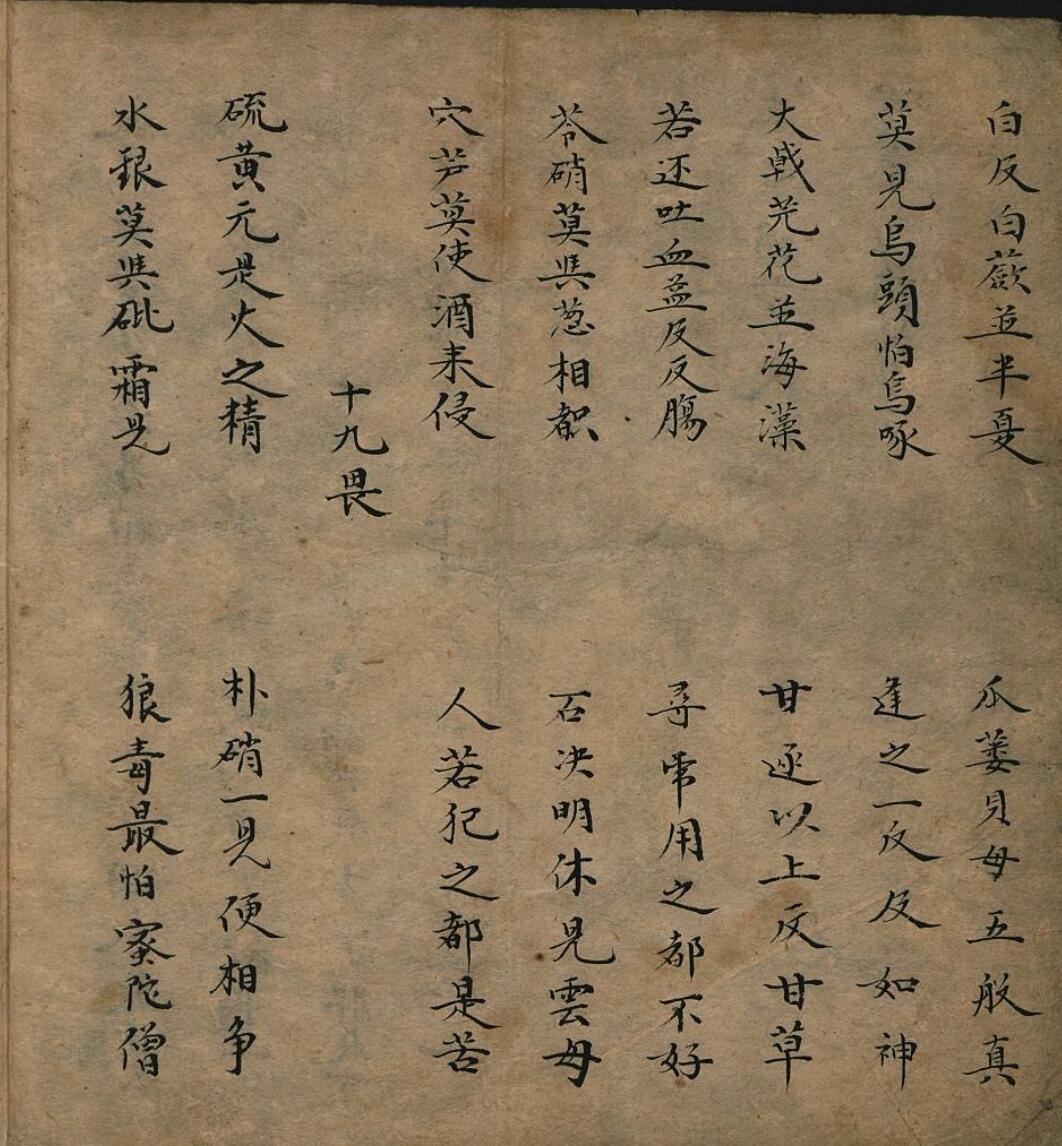 白反白蘞並半夏 瓜蒌貝母五般真
莫見烏頭怕烏啄 逢之一反反如神
大戟芫花並海藻 甘遂以上反甘草
若还吐血並反反腸 尋常用之都不好
苓硝莫與葱相 石决明休見雲母
穴芦莫使酒来侵 人若犯之都是苦
十九畏
硫黄元是火之精 朴硝一見便相争
水銀莫與砒霜見 狼毒最怕蜜陀僧